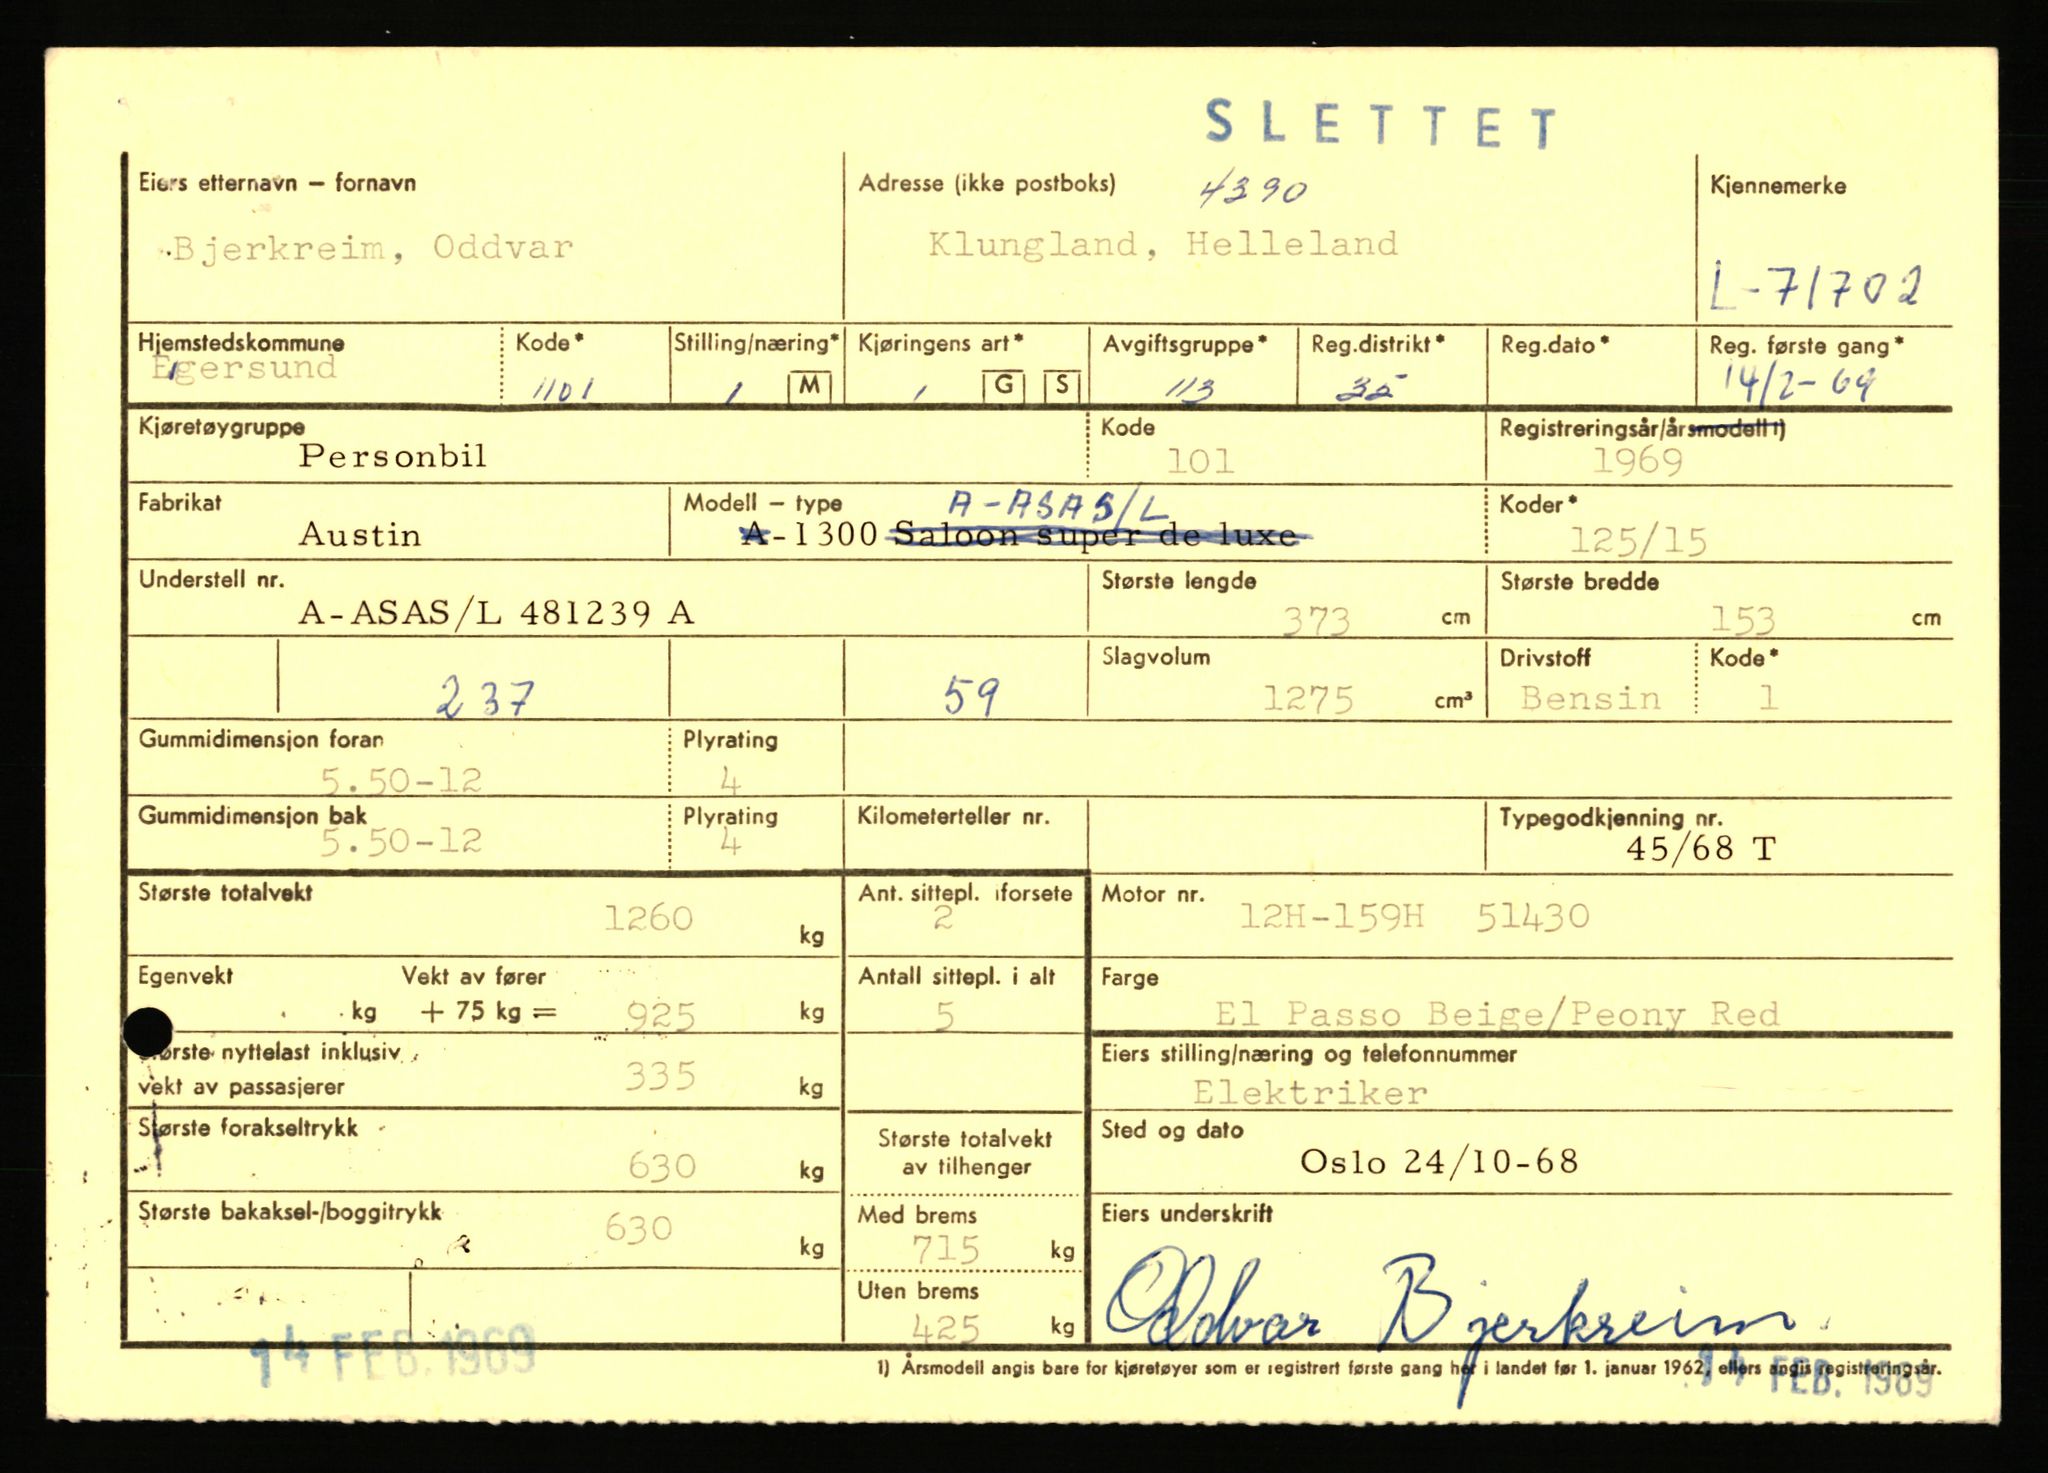 SLETTET
Eiers etternavn – fornavn
Bjerkreim, Oddvar
Adresse (ikke postboks) 4390
Klungland, Helleland
Kjennemerke
L-71702
Hjemstedskommune
Egersund
Kode*
1101
Stilling/næring*
1 M
Kjøringens art*
1 G S
Avgiftsgruppe*
113
Reg.distrikt*
35
Reg.dato*
Reg. første gang*
14/2-69
Kjøretøygruppe
Personbil
Kode
101
Registreringsår/årsmodell 1)
1969
Fabrikat
Austin
Modell – type A-ASAS/L
A-1300 Saloon super de luxe
Koder*
125/15
Understell nr.
A-ASAS/L 481239 A
Største lengde
373 cm
Største bredde
153 cm
237
59
Slagvolum
1275 cm³
Drivstoff
Bensin
Kode*
1
Gummidimensjon foran
5.50-12
Plyrating
4
Gummidimensjon bak
5.50-12
Plyrating
4
Kilometerteller nr.
Typegodkjenning nr.
45/68 T
Største totalvekt
1260 kg
Ant. sittepl. i forsete
2
Motor nr.
12H-159H 51430
Egenvekt kg
Vekt av fører
+ 75 kg = 925 kg
Antall sittepl. i alt
5
Farge
El Passo Beige/Peony Red
Største nyttelast inklusiv
vekt av passasjerer 335 kg
Eiers stilling/næring og telefonnummer
Elektriker
Største forakseltrykk
630 kg
Største totalvekt
av tilhenger
Sted og dato
Oslo 24/10-68
Største bakaksel-/boggitrykk
630 kg
Med brems
715 kg
Uten brems
425 kg
Eiers underskrift
Oddvar Bjerkreim
14 FEB. 1969
1) Årsmodell angis bare for kjøretøyer som er registrert første gang her i landet før 1. januar 1962, ellers angis registreringsår.
14 FEB. 1969